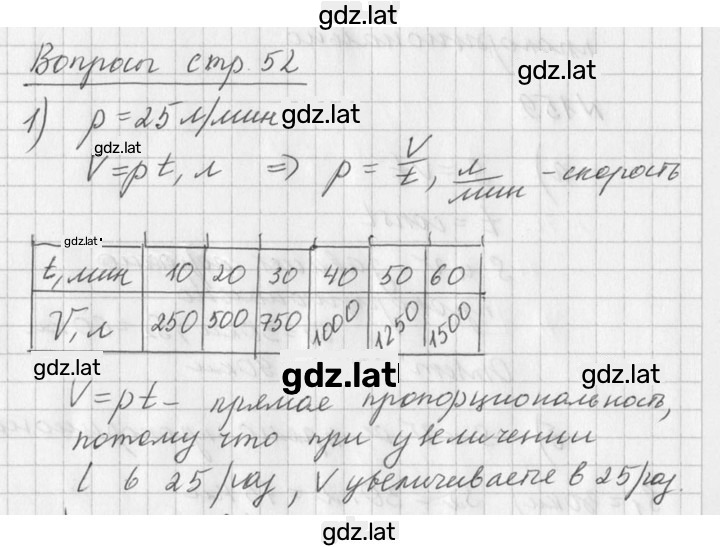 gdz.lat
Вопросы стр. 52
gdz.lat
1) p = 25 л/мин
gdz.lat
gdz.lat
V = pt, л ⇒ p = V/t, л/мин - скорость
gdz.lat
t, мин 10 20 30 40 50 60
V, л 250 500 750 1000 1250 1500
gdz.lat gdz.lat gdz.lat
V = pt – прямая пропорциональность,
потому что при увеличении
t в 25 раз, V увеличивается в 25 раз.
gdz.lat